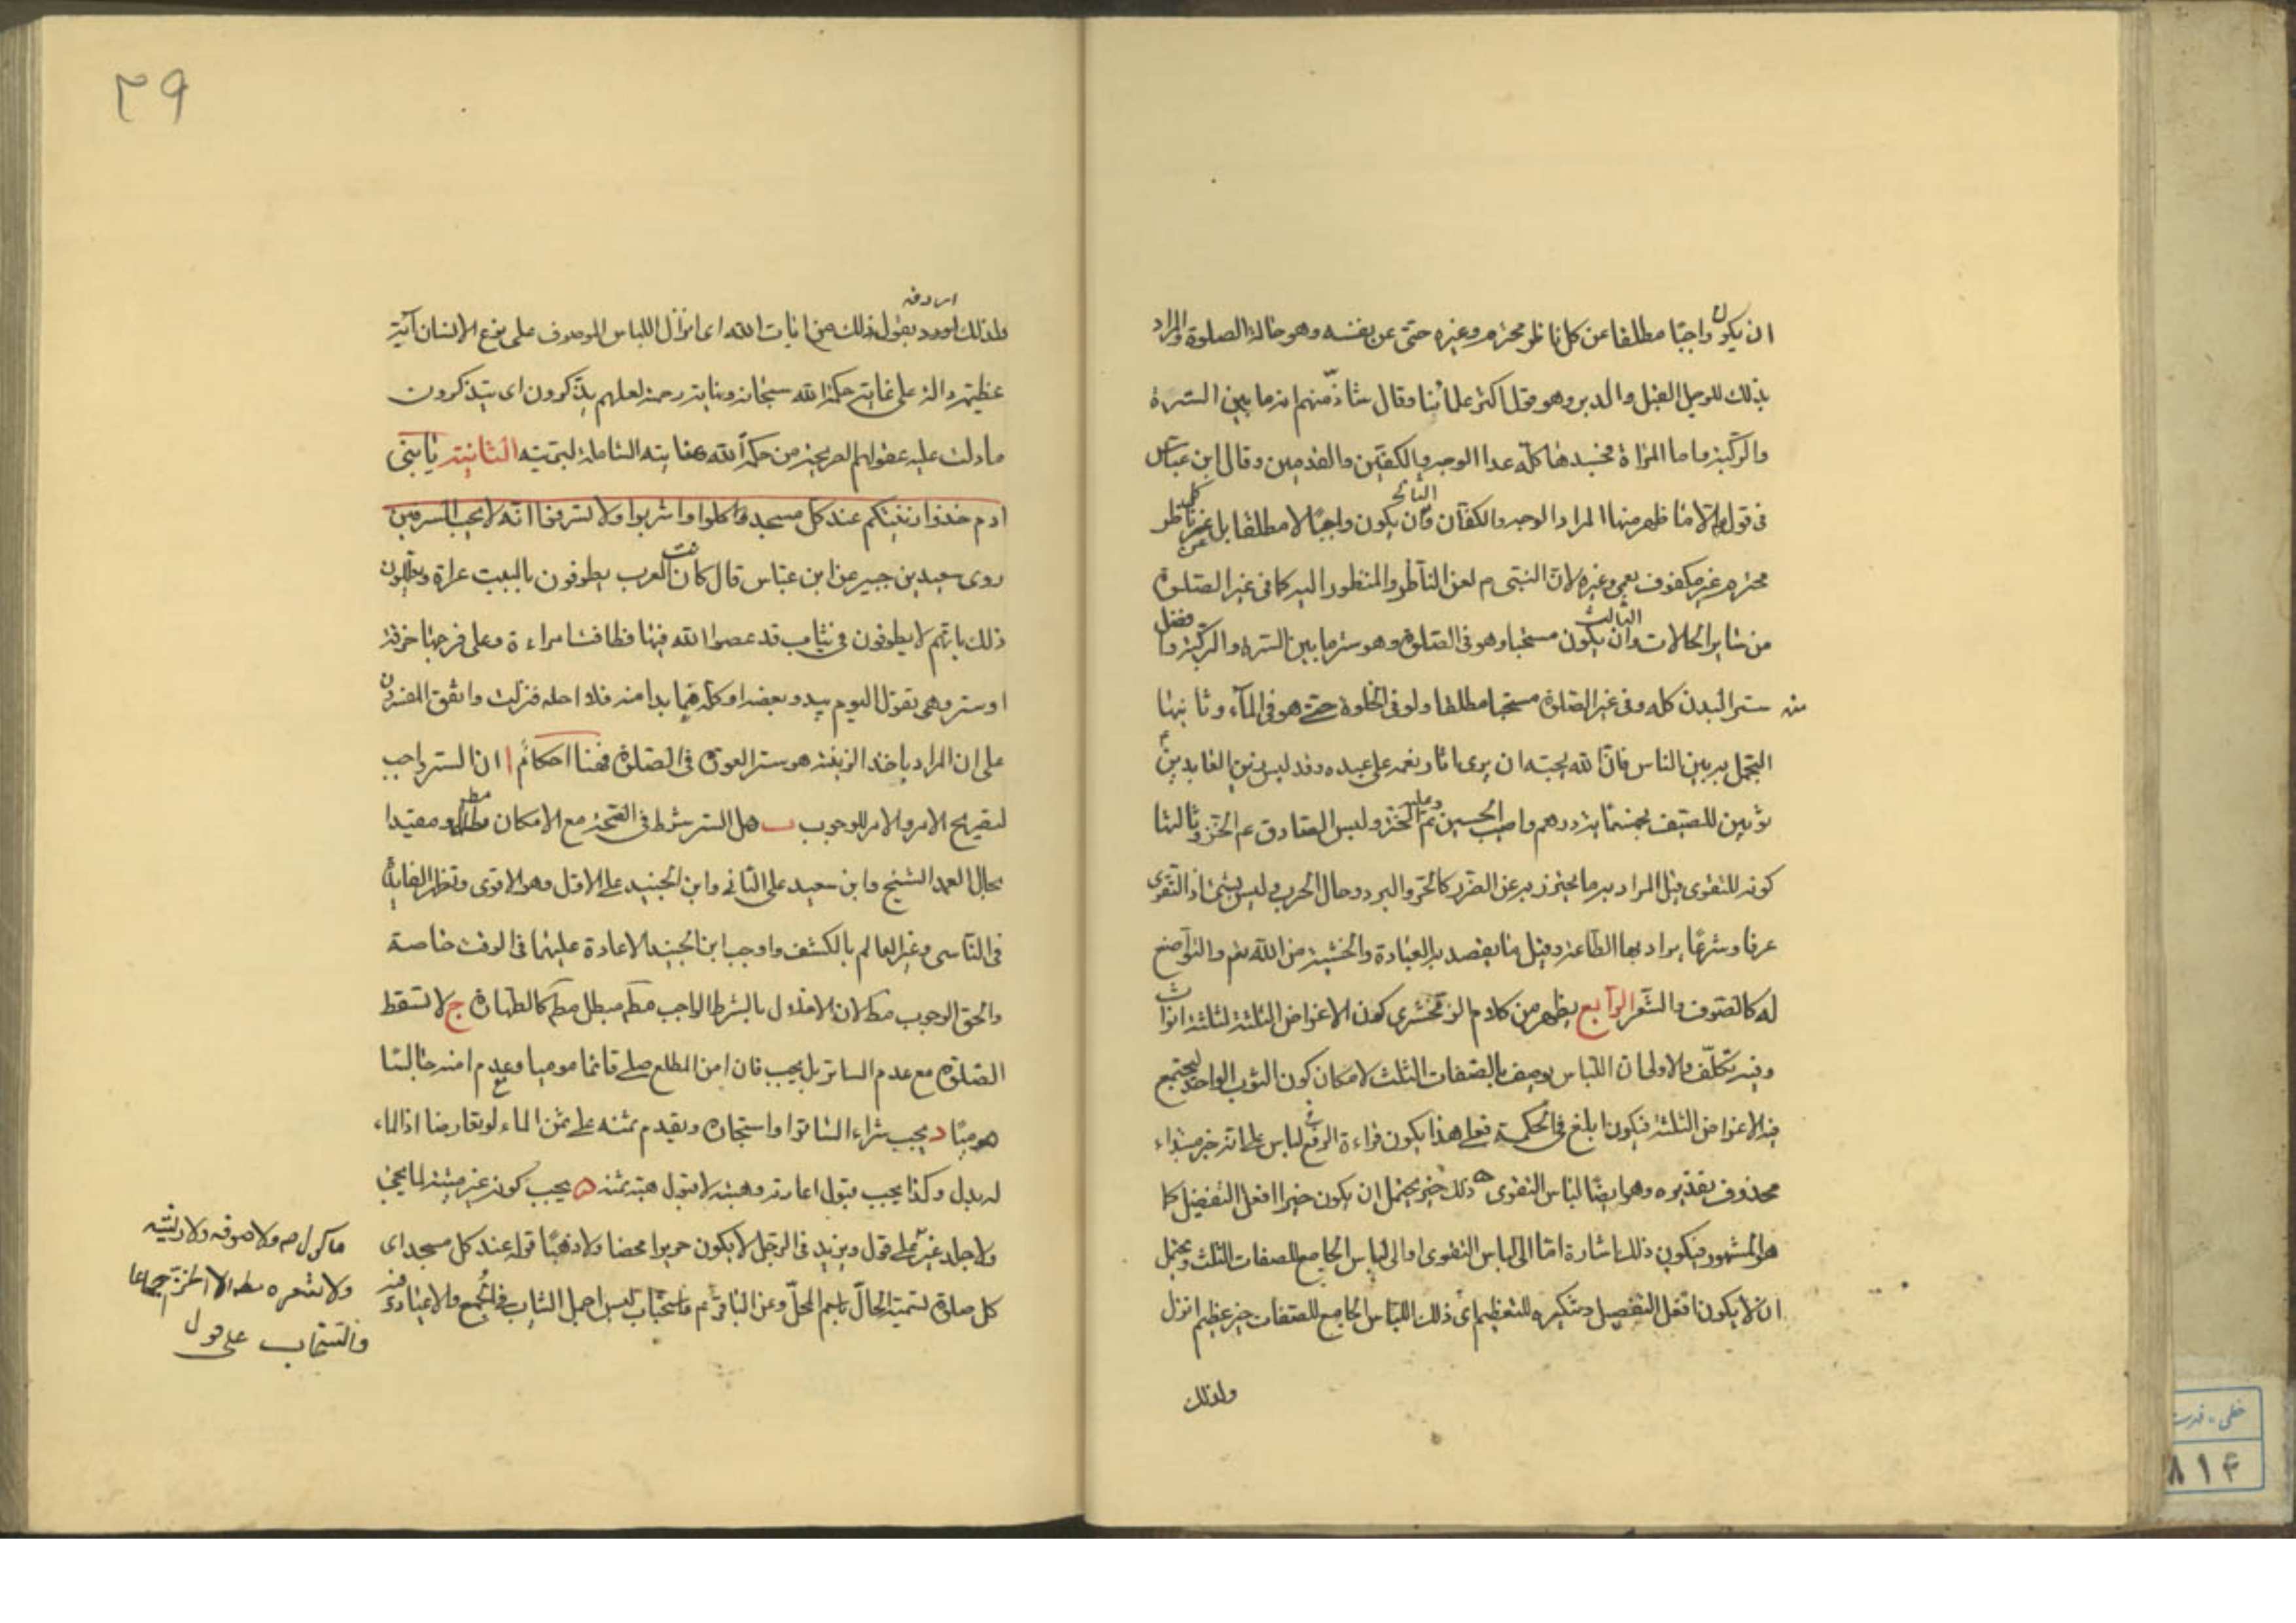 ان يكون واجبا مطلقا عن كل ناظر محترم وغيره حتى عن نفسه وهو حالة الصلوة والمراد
بذلك للرجل القبل والدبر وهو قول اكثر علمائنا وقال شاذ منهم انه ما بين السرة
والركبة واما المراة فجسدها كله عدا الوجه والكفين والقدمين وقال ابن عباس
فى قوله الا ما ظهر منها المراد الوجه والكفان الثانى وان يكون واجبا لا مطلقا بل عن كل ناظر
محترم غير مكفوف بعمى وغيره لان النبى ص لعن الناظر والمنظور اليه كما فى غير الصلوة
من ساير الحالات الثالث وان يكون مستحبا وهو فى الصلوة وهو ستر ما بين السرة والركبة وافضل
منه ستر البدن كله وفى غير الصلوة مستحبا مطلقا ولو فى الخلوة حتى هو فى الماء وثانيها
التجمل به بين الناس فان الله يحبه ان يرى اثار نعمه على عبده وقد لبس زين العابدين ع
ثوبين للصيف بخمسمائة درهم واصيب الحسين ع وعليه الخز ولبس الصادق ع الخز وثالثها
كونه للتقوى قيل المراد به ما يحترز به عن الضرر كالحر والبرد وحال الحرب وليس بشئ اذ التقوى
عرفا وشرعا يراد بها الطاعة وقيل ما يقصد به العبادة والخشية من الله تعم والتواضع
له كالصوف والشعر الرابع يظهر من كلام الزمخشرى كون الاغراض الثلثة لثلثة اثواب
وفيه تكلف والاولى ان اللباس يوصف بالصفات الثلث لامكان كون الثوب الواحد يجتمع
فيه الاغراض الثلثة فيكون ابلغ فى الحكمة فعلى هذا يكون قراءة الرفع فى لباس على انه خبر مبتداء
محذوف تقديره وهو ايضا لباس التقوى ه ذلك خير يحتمل ان يكون خيرا افعل التفضيل كما
هو المشهور فيكون ذلك اشارة اما الى لباس التقوى او الى لباس الجامع للصفات الثلث ويحتمل
ان لا يكون افعل التفضيل وتنكيره للتعظيم اى ذلك اللباس الجامع للصفات خير عظيم انزل
ولذلك
٣٩
اردفه
ولذلك اورد بقوله ذلك من ايات الله اى انزال اللباس الموصوف على نوع الانسان آية
عظيمة دالة على غاية حكمة الله سبحانه ونهاية رحمته لعلهم يذكرون اى يتذكرون
ما دلت عليه عقولهم الصريحة من حكمة الله وعنايته الشاملة لبريته الثانية يا بنى
ادم خذوا زينتكم عند كل مسجد وكلوا واشربوا ولا تسرفوا انه لا يحب المسرفين
روى سعيد بن جبير عن ابن عباس قال كانت العرب يطوفون بالبيت عراة ويعللون
ذلك بانهم لا يطوفون فى ثياب قد عصوا الله فيها فطافت امراءة وعلى فرجها خرقة
او ستر وهى تقول اليوم يبدو بعضه او كله فما بدا منه فلا احله فنزلت واتفق المفسرون
على ان المراد باخذ الزينة هو ستر العورة فى الصلوة فهنا احكام ا ان الستر واجب
لتصريح الامر والامر للوجوب ب هل الستر شرط فى الصحة مع الامكان مطلقا او مقيدا
بحال العمد الشيخ وابن سعيد على الثانى وابن الجنيد على الاول وهو الاقوى وتظهر الفايدة
فى الناسى وغير العالم بالكشف واوجب ابن الجنيد الاعادة عليهما فى الوقت خاصة
والحق الوجوب مط لان الاخلال بالشرط الواجب مط مبطل مط كالطهارة ج لا تسقط
الصلوة مع عدم الساتر بل يجب فان امن المطلع صلى قائما موميا ومع عدم امنه جالسا
موميا د يجب شراء الساتر او استيجاره ويقدم ثمنه على ثمن الماء لو تعارضا اذ الماء
له بدل وكذا يجب قبول اعارته وهبته لا قبول هبة ثمنه ه يجب كونه غير ميتة لما يجئ
ولا جلد غير على قول ويزيد فى الرجل لا يكون حريرا محضا ولا ذهبا قوله عند كل مسجد اى
كل صلوة لتسمية الحال باسم المحل وعن الباقر ع فاستحباب لبس اجمل الثياب فى الجمع والاعياد
ماكول ولا صوفه ولا ريشه
ولا شعره الا الخز اجماعا
والسنجاب على قول
خطى - فهرست
٨١٤